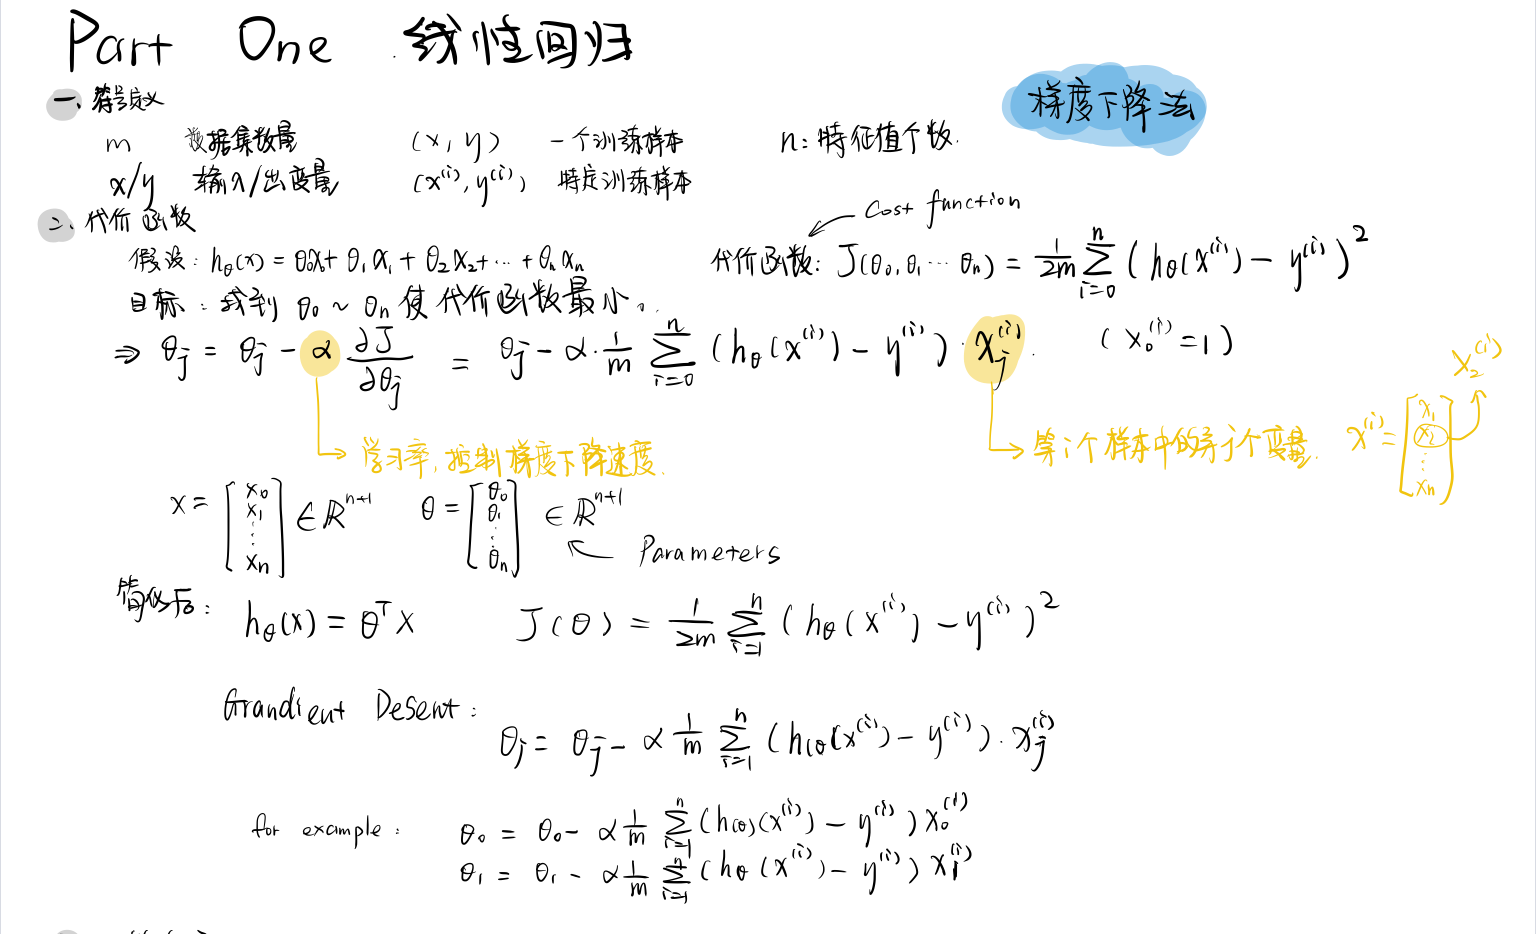 Part One 线性回归
梯度下降法
一、符号定义
m 数据集数量 (x, y) 一个训练样本 n: 特征值个数.
x/y 输入/出变量 (x⁽ⁱ⁾, y⁽ⁱ⁾) 特定训练样本
二、代价函数
cost function
假设: h_θ(x) = θ₀x₀ + θ₁x₁ + θ₂x₂ + … + θₙxₙ 代价函数: J(θ₀, θ₁ … θₙ) = 1/2m ∑_{i=0}^{n} (hθ(x⁽ⁱ⁾) − y⁽ⁱ⁾)²
目标: 找到 θ₀ ~ θₙ 使代价函数最小。
⇒ θ_j = θ_j − α ∂J/∂θ_j = θ_j − α · 1/m ∑_{i=0}^{n} (h_θ(x⁽ⁱ⁾) − y⁽ⁱ⁾) · x_j⁽ⁱ⁾ . (x₀⁽ⁱ⁾ = 1)
x₂⁽ⁱ⁾
→ 学习率, 控制梯度下降速度.
→ 第i个样本中的第j个变量. x⁽ⁱ⁾ = [x₁ x₂ ⋮ xₙ]
x = [x₀ x₁ ⋮ xₙ] ∈ ℝⁿ⁺¹ θ = [θ₀ θ₁ ⋮ θₙ] ∈ ℝⁿ⁺¹
Parameters
简化后: h_θ(x) = θᵀx J(θ) = 1/2m ∑_{i=1}^{n} (hθ(x⁽ⁱ⁾) − y⁽ⁱ⁾)²
Grandient Desent:
θ_j = θ_j − α 1/m ∑_{i=1}^{n} (h(θ(x⁽ⁱ⁾) − y⁽ⁱ⁾) · x_j⁽ⁱ⁾
for example: θ₀ = θ₀ − α 1/m ∑_{i=1}^{n} (h(θ)(x⁽ⁱ⁾) − y⁽ⁱ⁾) x₀⁽ⁱ⁾
θ₁ = θ₁ − α 1/m ∑_{i=1}^{n} (hθ(x⁽ⁱ⁾) − y⁽ⁱ⁾) x₁⁽ⁱ⁾